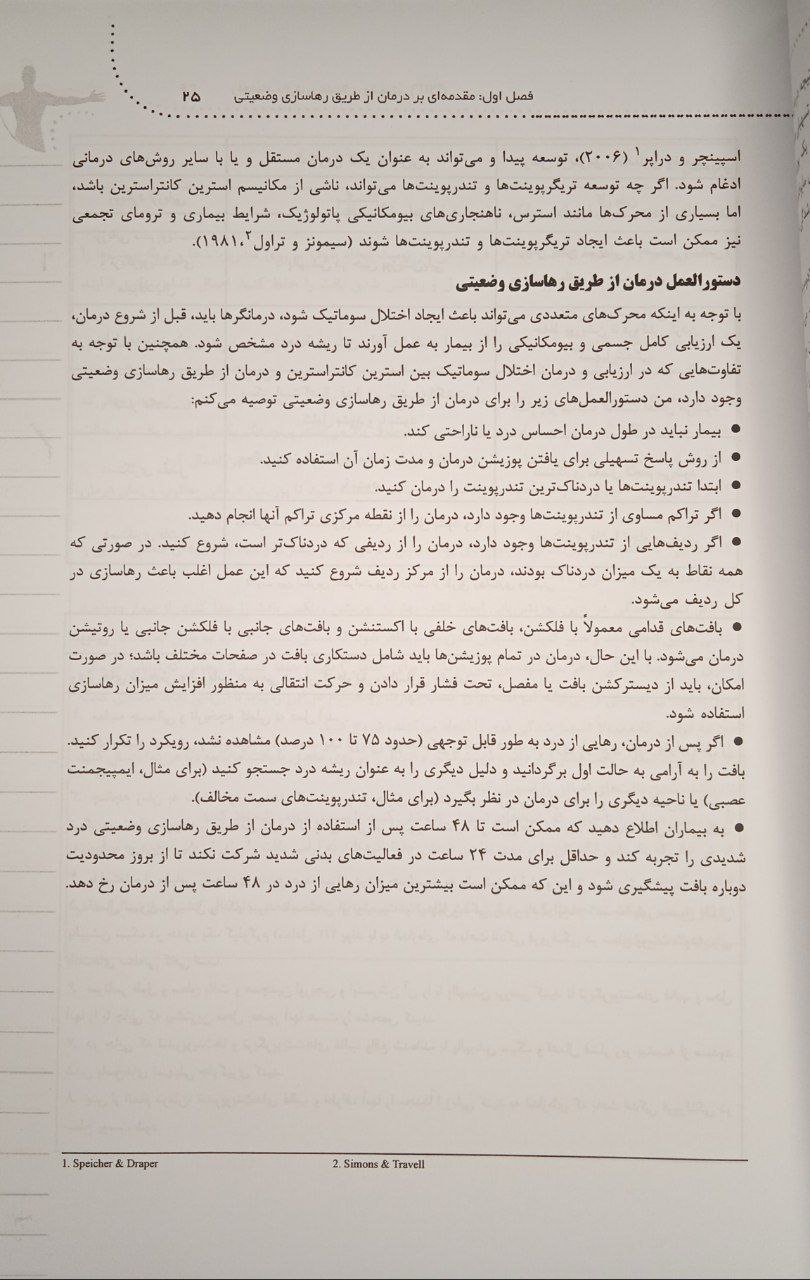 فصل اول: مقدمه‌ای بر درمان از طریق رهاسازی وضعیتی ۲۵
اسپیچر و دراپر۱ (۲۰۰۶)، توسعه پیدا و می‌تواند به عنوان یک درمان مستقل و یا با سایر روش‌های درمانی
ادغام شود. اگر چه توسعه تریگرپوینت‌ها و تندرپوینت‌ها می‌تواند، ناشی از مکانیسم استرین کانتراسترین باشد،
اما بسیاری از محرک‌ها مانند استرس، ناهنجاری‌های بیومکانیکی پاتولوژیک، شرایط بیماری و ترومای تجمعی
نیز ممکن است باعث ایجاد تریگرپوینت‌ها و تندرپوینت‌ها شوند (سیمونز و تراول۲، ۱۹۸۱).
دستورالعمل درمان از طریق رهاسازی وضعیتی
با توجه به اینکه محرک‌های متعددی می‌تواند باعث ایجاد اختلال سوماتیک شود، درمانگرها باید، قبل از شروع درمان،
یک ارزیابی کامل جسمی و بیومکانیکی را از بیمار به عمل آورند تا ریشه درد مشخص شود. همچنین با توجه به
تفاوت‌هایی که در ارزیابی و درمان اختلال سوماتیک بین استرین کانتراسترین و درمان از طریق رهاسازی وضعیتی
وجود دارد، من دستورالعمل‌های زیر را برای درمان از طریق رهاسازی وضعیتی توصیه می‌کنم:
● بیمار نباید در طول درمان احساس درد یا ناراحتی کند.
● از روش پاسخ تسهیلی برای یافتن پوزیشن درمان و مدت زمان آن استفاده کنید.
● ابتدا تندرپوینت‌ها یا دردناک‌ترین تندرپوینت را درمان کنید.
● اگر تراکم مساوی از تندرپوینت‌ها وجود دارد، درمان را از نقطه مرکزی تراکم آنها انجام دهید.
● اگر ردیف‌هایی از تندرپوینت‌ها وجود دارد، درمان را از ردیفی که دردناک‌تر است، شروع کنید. در صورتی که
همه نقاط به یک میزان دردناک بودند، درمان را از مرکز ردیف شروع کنید که این عمل اغلب باعث رهاسازی در
کل ردیف می‌شود.
● بافت‌های قدامی معمولاً با فلکشن، بافت‌های خلفی با اکستنشن و بافت‌های جانبی با فلکشن جانبی یا روتیشن
درمان می‌شود. با این حال، درمان در تمام پوزیشن‌ها باید شامل دستکاری بافت در صفحات مختلف باشد؛ در صورت
امکان، باید از دیسترکشن بافت یا مفصل، تحت فشار قرار دادن و حرکت انتقالی به منظور افزایش میزان رهاسازی
استفاده شود.
● اگر پس از درمان، رهایی از درد به طور قابل توجهی (حدود ۷۵ تا ۱۰۰ درصد) مشاهده نشد، رویکرد را تکرار کنید.
بافت را به آرامی به حالت اول برگردانید و دلیل دیگری را به عنوان ریشه درد جستجو کنید (برای مثال، ایمپیجمنت
عصبی) یا ناحیه دیگری را برای درمان در نظر بگیرد (برای مثال، تندرپوینت‌های سمت مخالف).
● به بیماران اطلاع دهید که ممکن است تا ۴۸ ساعت پس از استفاده از درمان از طریق رهاسازی وضعیتی درد
شدیدی را تجربه کند و حداقل برای مدت ۲۴ ساعت در فعالیت‌های بدنی شدید شرکت نکند تا از بروز محدودیت
دوباره بافت پیشگیری شود و این که ممکن است بیشترین میزان رهایی از درد در ۴۸ ساعت پس از درمان رخ دهد.
1. Speicher & Draper 2. Simons & Travell